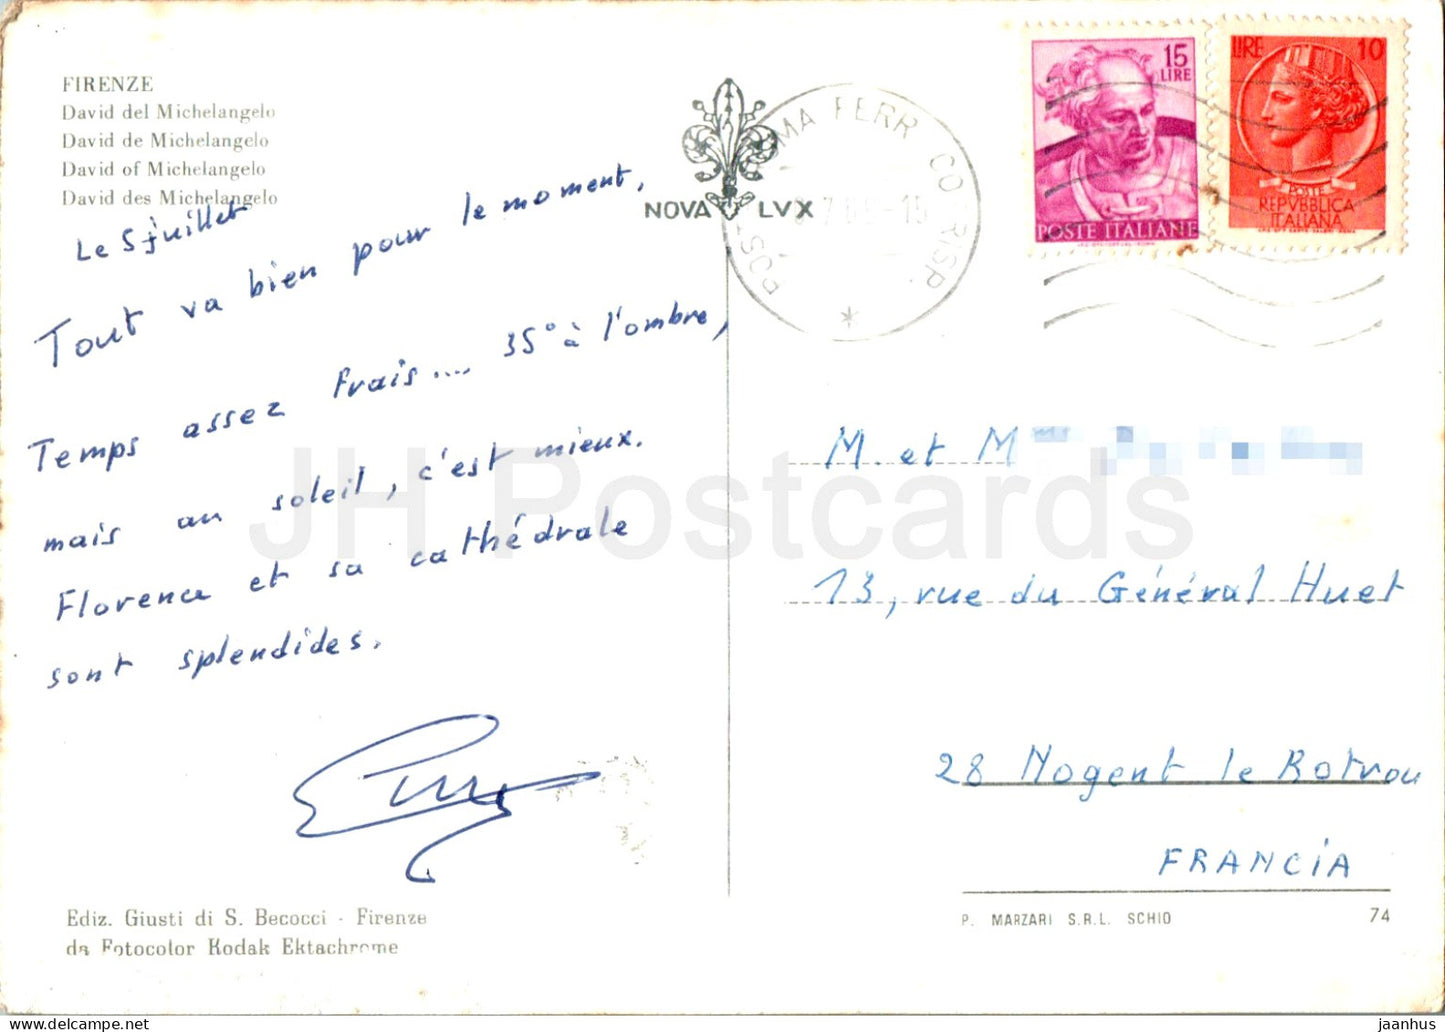 FIRENZE
David del Michelangelo
David de Michelangelo
David of Michelangelo
David des Michelangelo
Le 5 juillet
Tout va bien pour le moment,
Temps assez frais.... 35° à l'ombre,
mais au soleil, c'est mieux.
Florence et sa cathédrale
sont splendides.
Ediz. Giusti di S. Becocci - Firenze
da Fotocolor Kodak Ektachrome
NOVA LVX
MA FERR CORRISP.
15
LIRE
POSTE ITALIANE
LIRE 10
POSTE
REPVBBLICA
ITALIANA
M. et M
13, rue du Général Huet
28 Nogent le Rotrou
FRANCiA
P. MARZARI S.R.L. SCHIO 74
JH Postcards
jaanhus